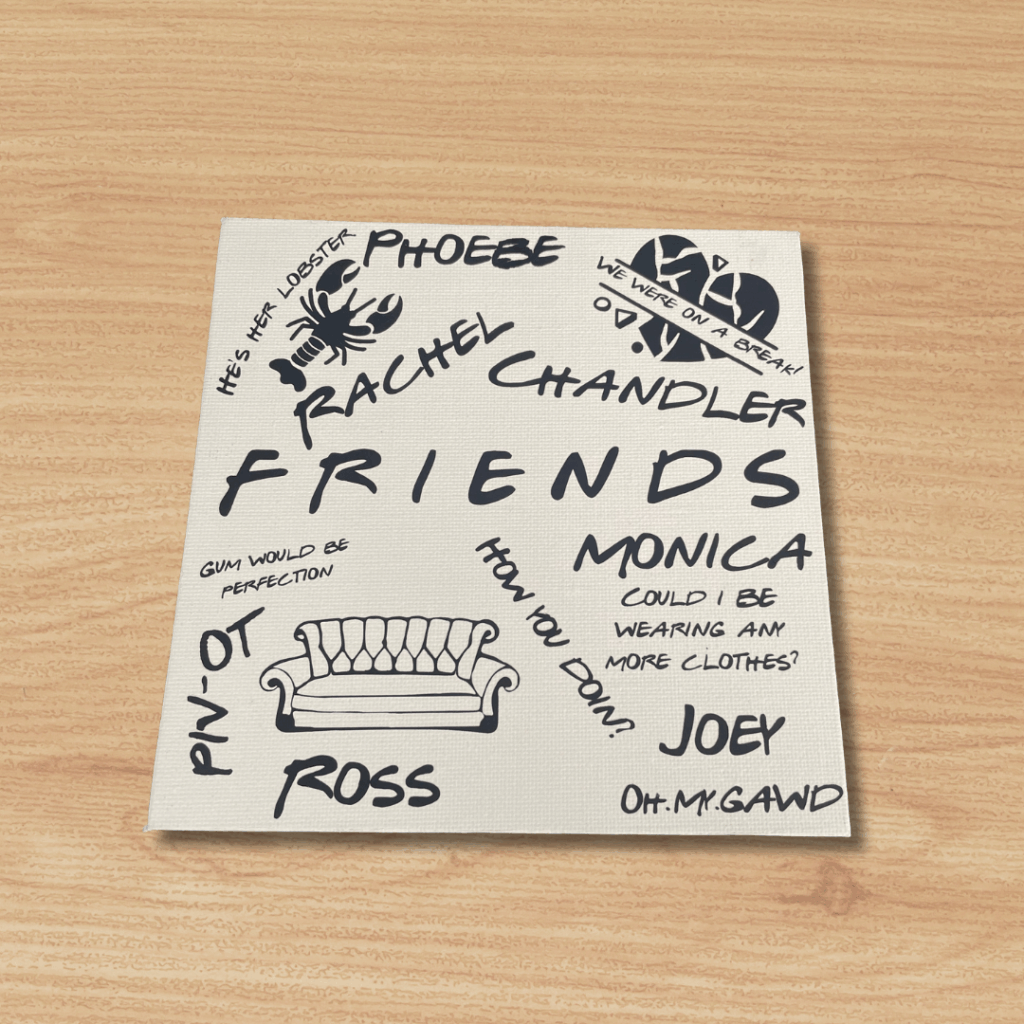 HE'S HER LOBSTER
PHOEBE
WE WERE ON A BREAK!
RACHEL
CHANDLER
FRIENDS
GUM WOULD BE
PERFECTION
HOW YOU DOIN?
MONICA
COULD I BE
WEARING ANY
MORE CLOTHES?
PIV-OT
JOEY
ROSS
OH.MY.GAWD